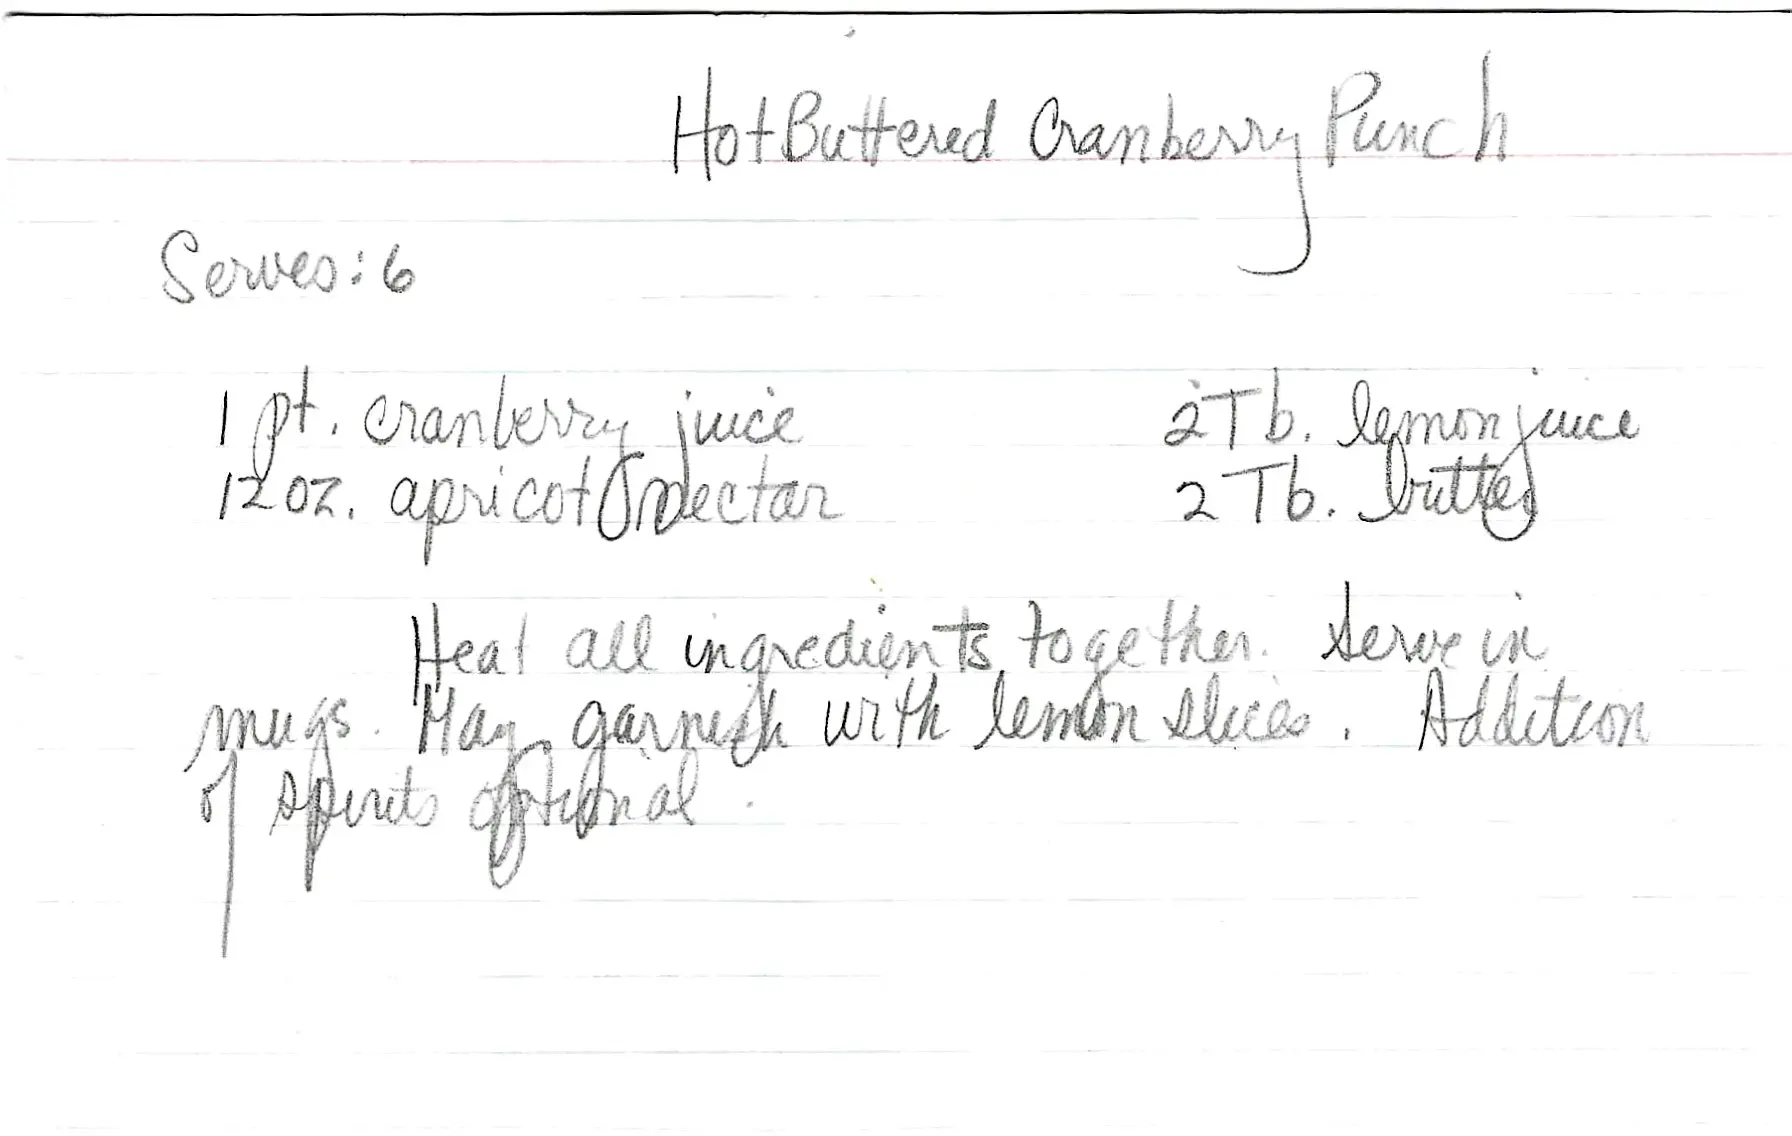 Hot Buttered Cranberry Punch
Serves: 6
1 pt. cranberry juice 2 Tb. lemon juice
12 oz. apricot nectar 2 Tb. butter
Heat all ingredients together. Serve in
mugs. May garnish with lemon slices. Addition
of spirits optional.